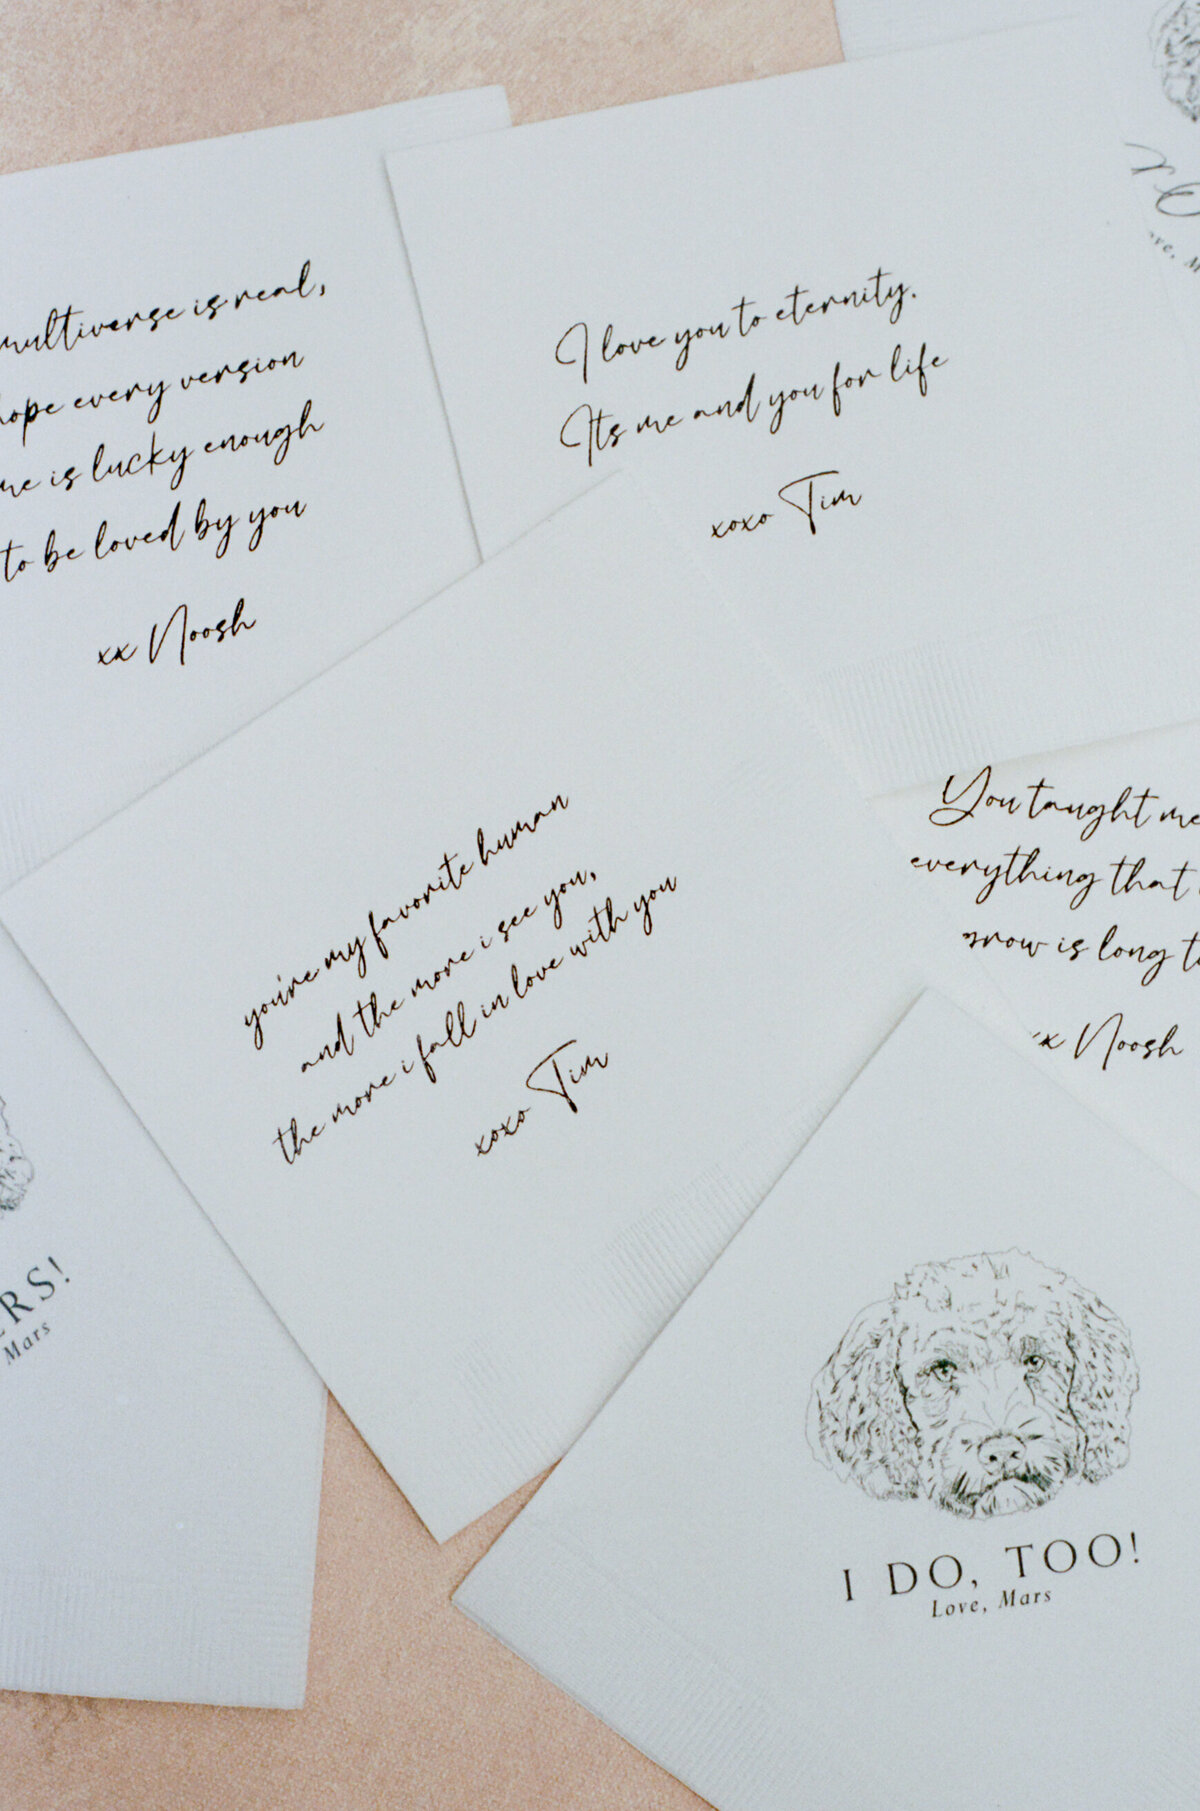 multiverse is real,
hope every version
me is lucky enough
to be loved by you
xx Noosh
I love you to eternity.
Its me and you for life
xoxo Tim
you're my favorite human
and the more i see you,
the more i fall in love with you
xoxo Tim
You taught me
everything that
is long
xx Noosh
Mars
I DO, TOO!
Love, Mars